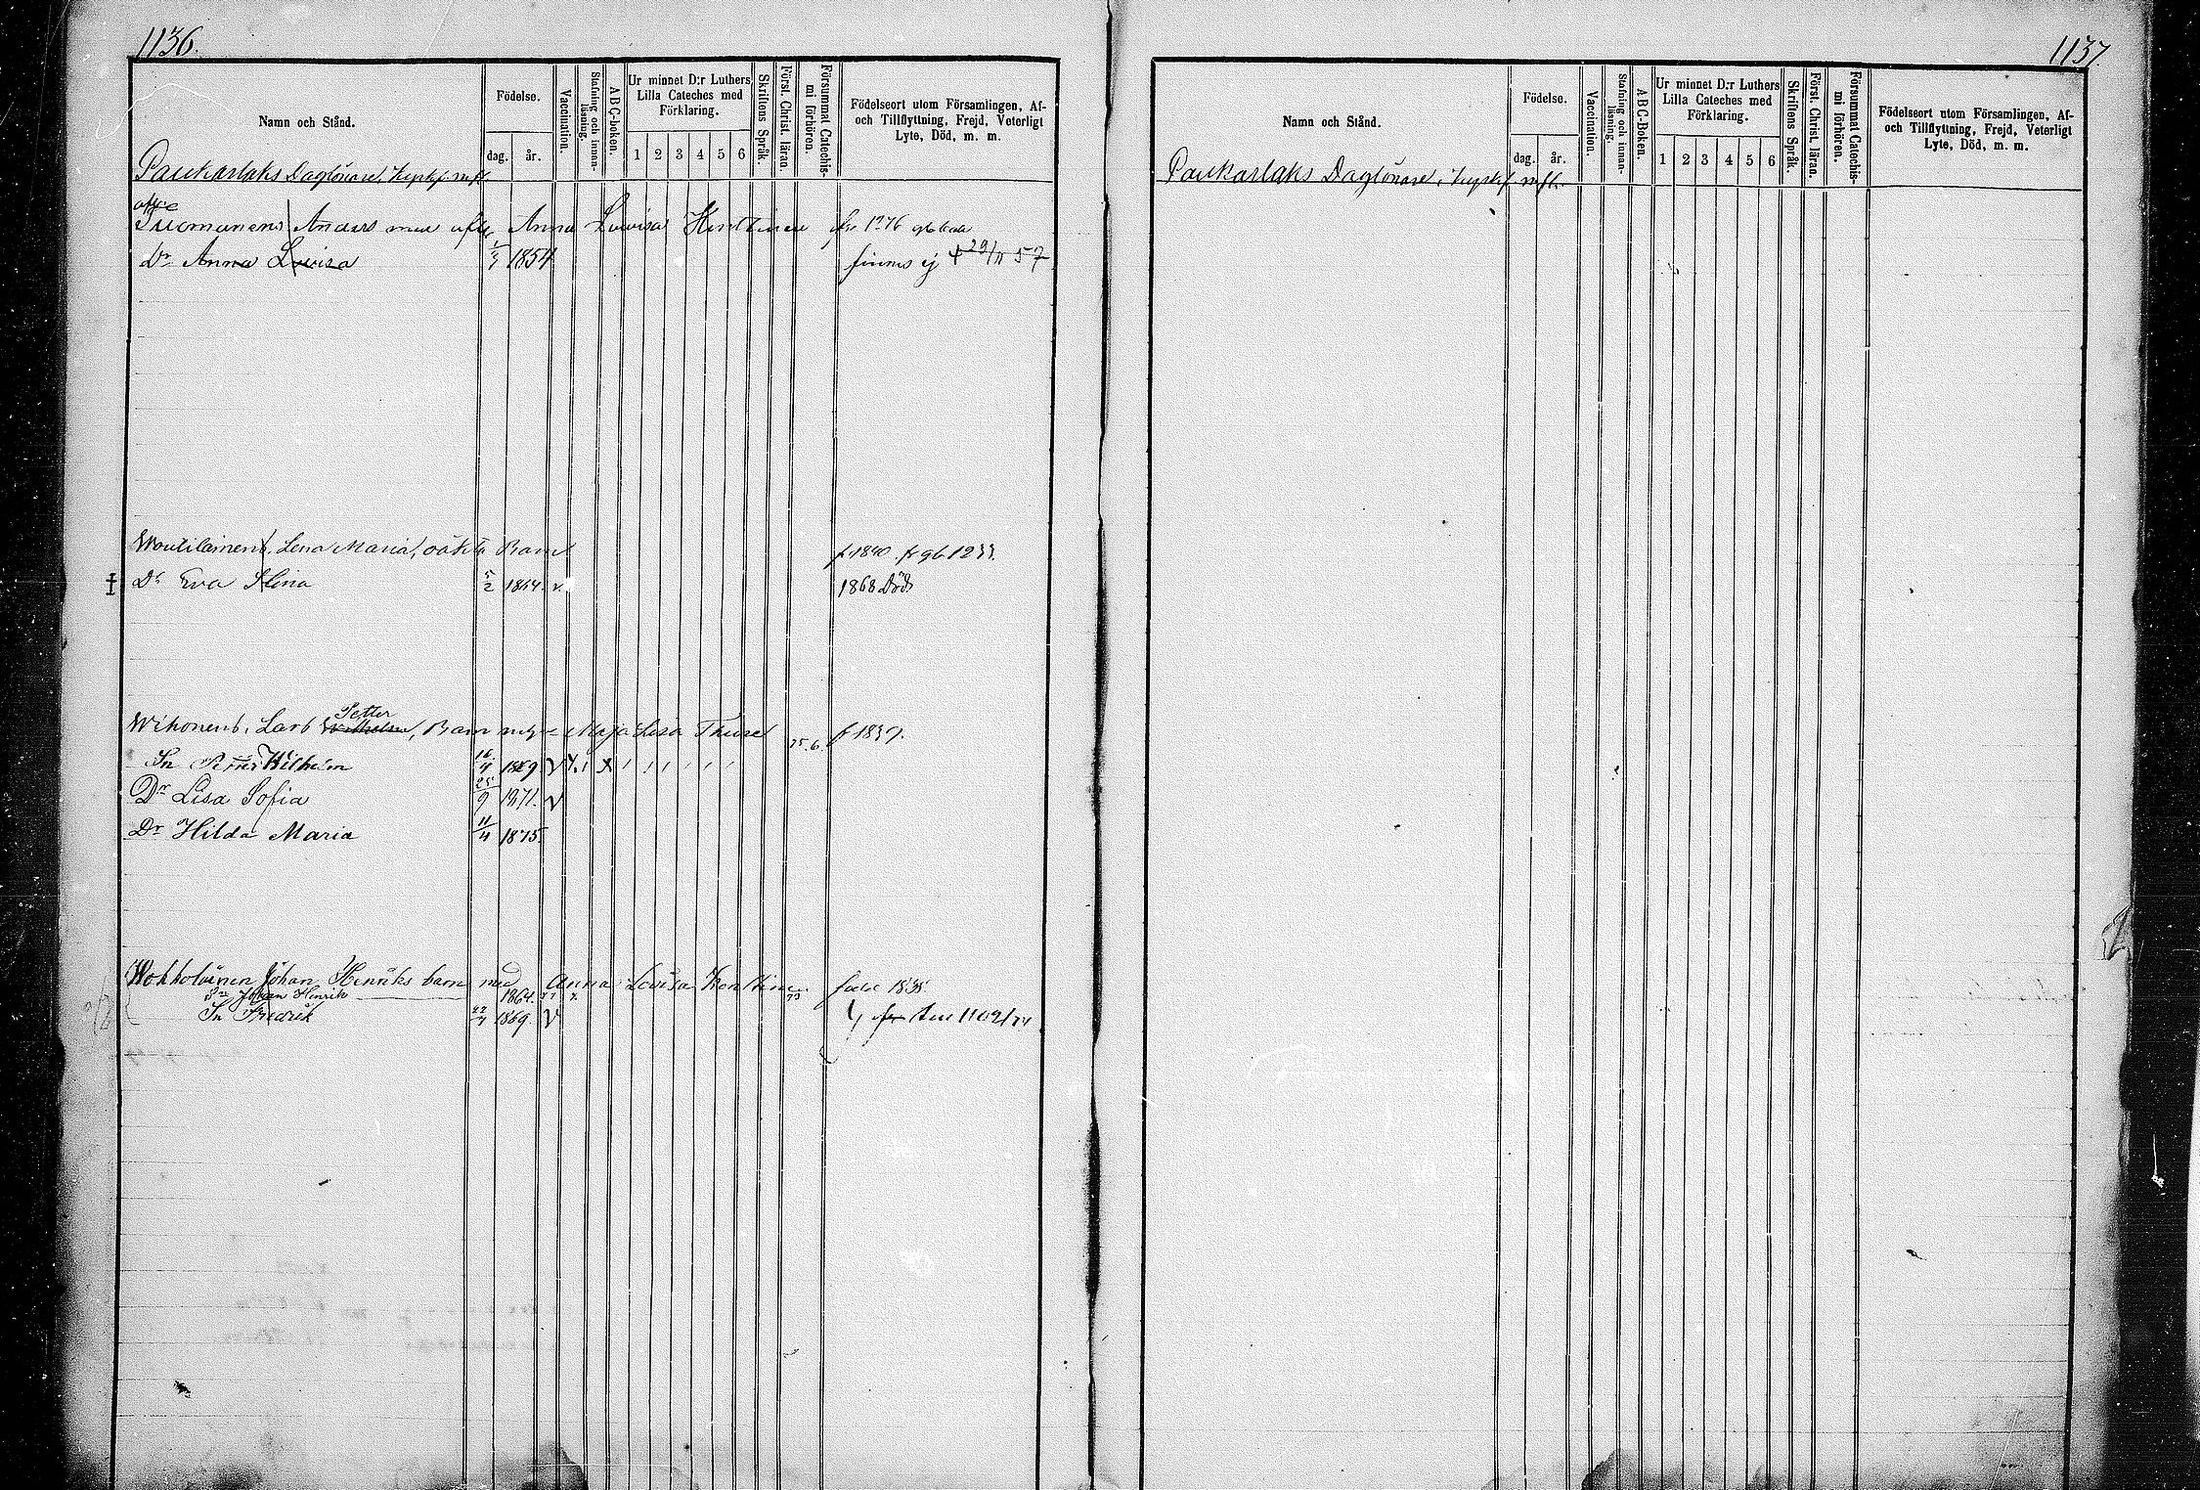 1136.
Namn och Stånd.
Födelse.
dag. år.
Vaccination.
Stafning och innanläsning.
A B C-boken.
Ur minnet D:r Luthers
Lilla Cateches med
Förklaring.
1 2 3 4 5 6
Skriftens Språk.
Först. Christ. läran.
Försummat Catechismi förhören.
Födelseort utom Församlingen, Af-
och Tillflyttning, Frejd, Veterligt
Lyte, Död, m. m.
Paukarlaks Daglönare,
Tuomanens Anders med Anna Lovisa Hinttinen
Dr Anna Lovisa 1854 finns ej † 29/11 57
Woutilainens, Lena Maria, oäkta Barn f. 1840.
† Dr Eva Stina 5/2 1864. v. 1868 Död
Wikonens, Lars Petter Wilhelm, Barn Maja Lisa 75.6. f 1837.
Sn Wilhelm 16/4 1869 V
Dr Lisa Sofia 25/9 1871. V
Dr Hilda Maria 11/4 1875.
Johan Henriks barn med Anna Lovisa 73
Sn Johan Henrik 1864.
Sn Fredrik 22/4 1869. V
1137
Namn och Stånd.
Födelse.
dag. år.
Vaccination.
Stafning och innanläsning.
A B C-Boken.
Ur minnet D:r Luthers
Lilla Cateches med
Förklaring.
1 2 3 4 5 6
Skriftens Språk.
Först. Christ. läran.
Försummat Catechismi förhören.
Födelseort utom Församlingen, Af-
och Tillflyttning, Frejd, Veterligt
Lyte, Död, m. m.
Paukarlaks Daglönare,